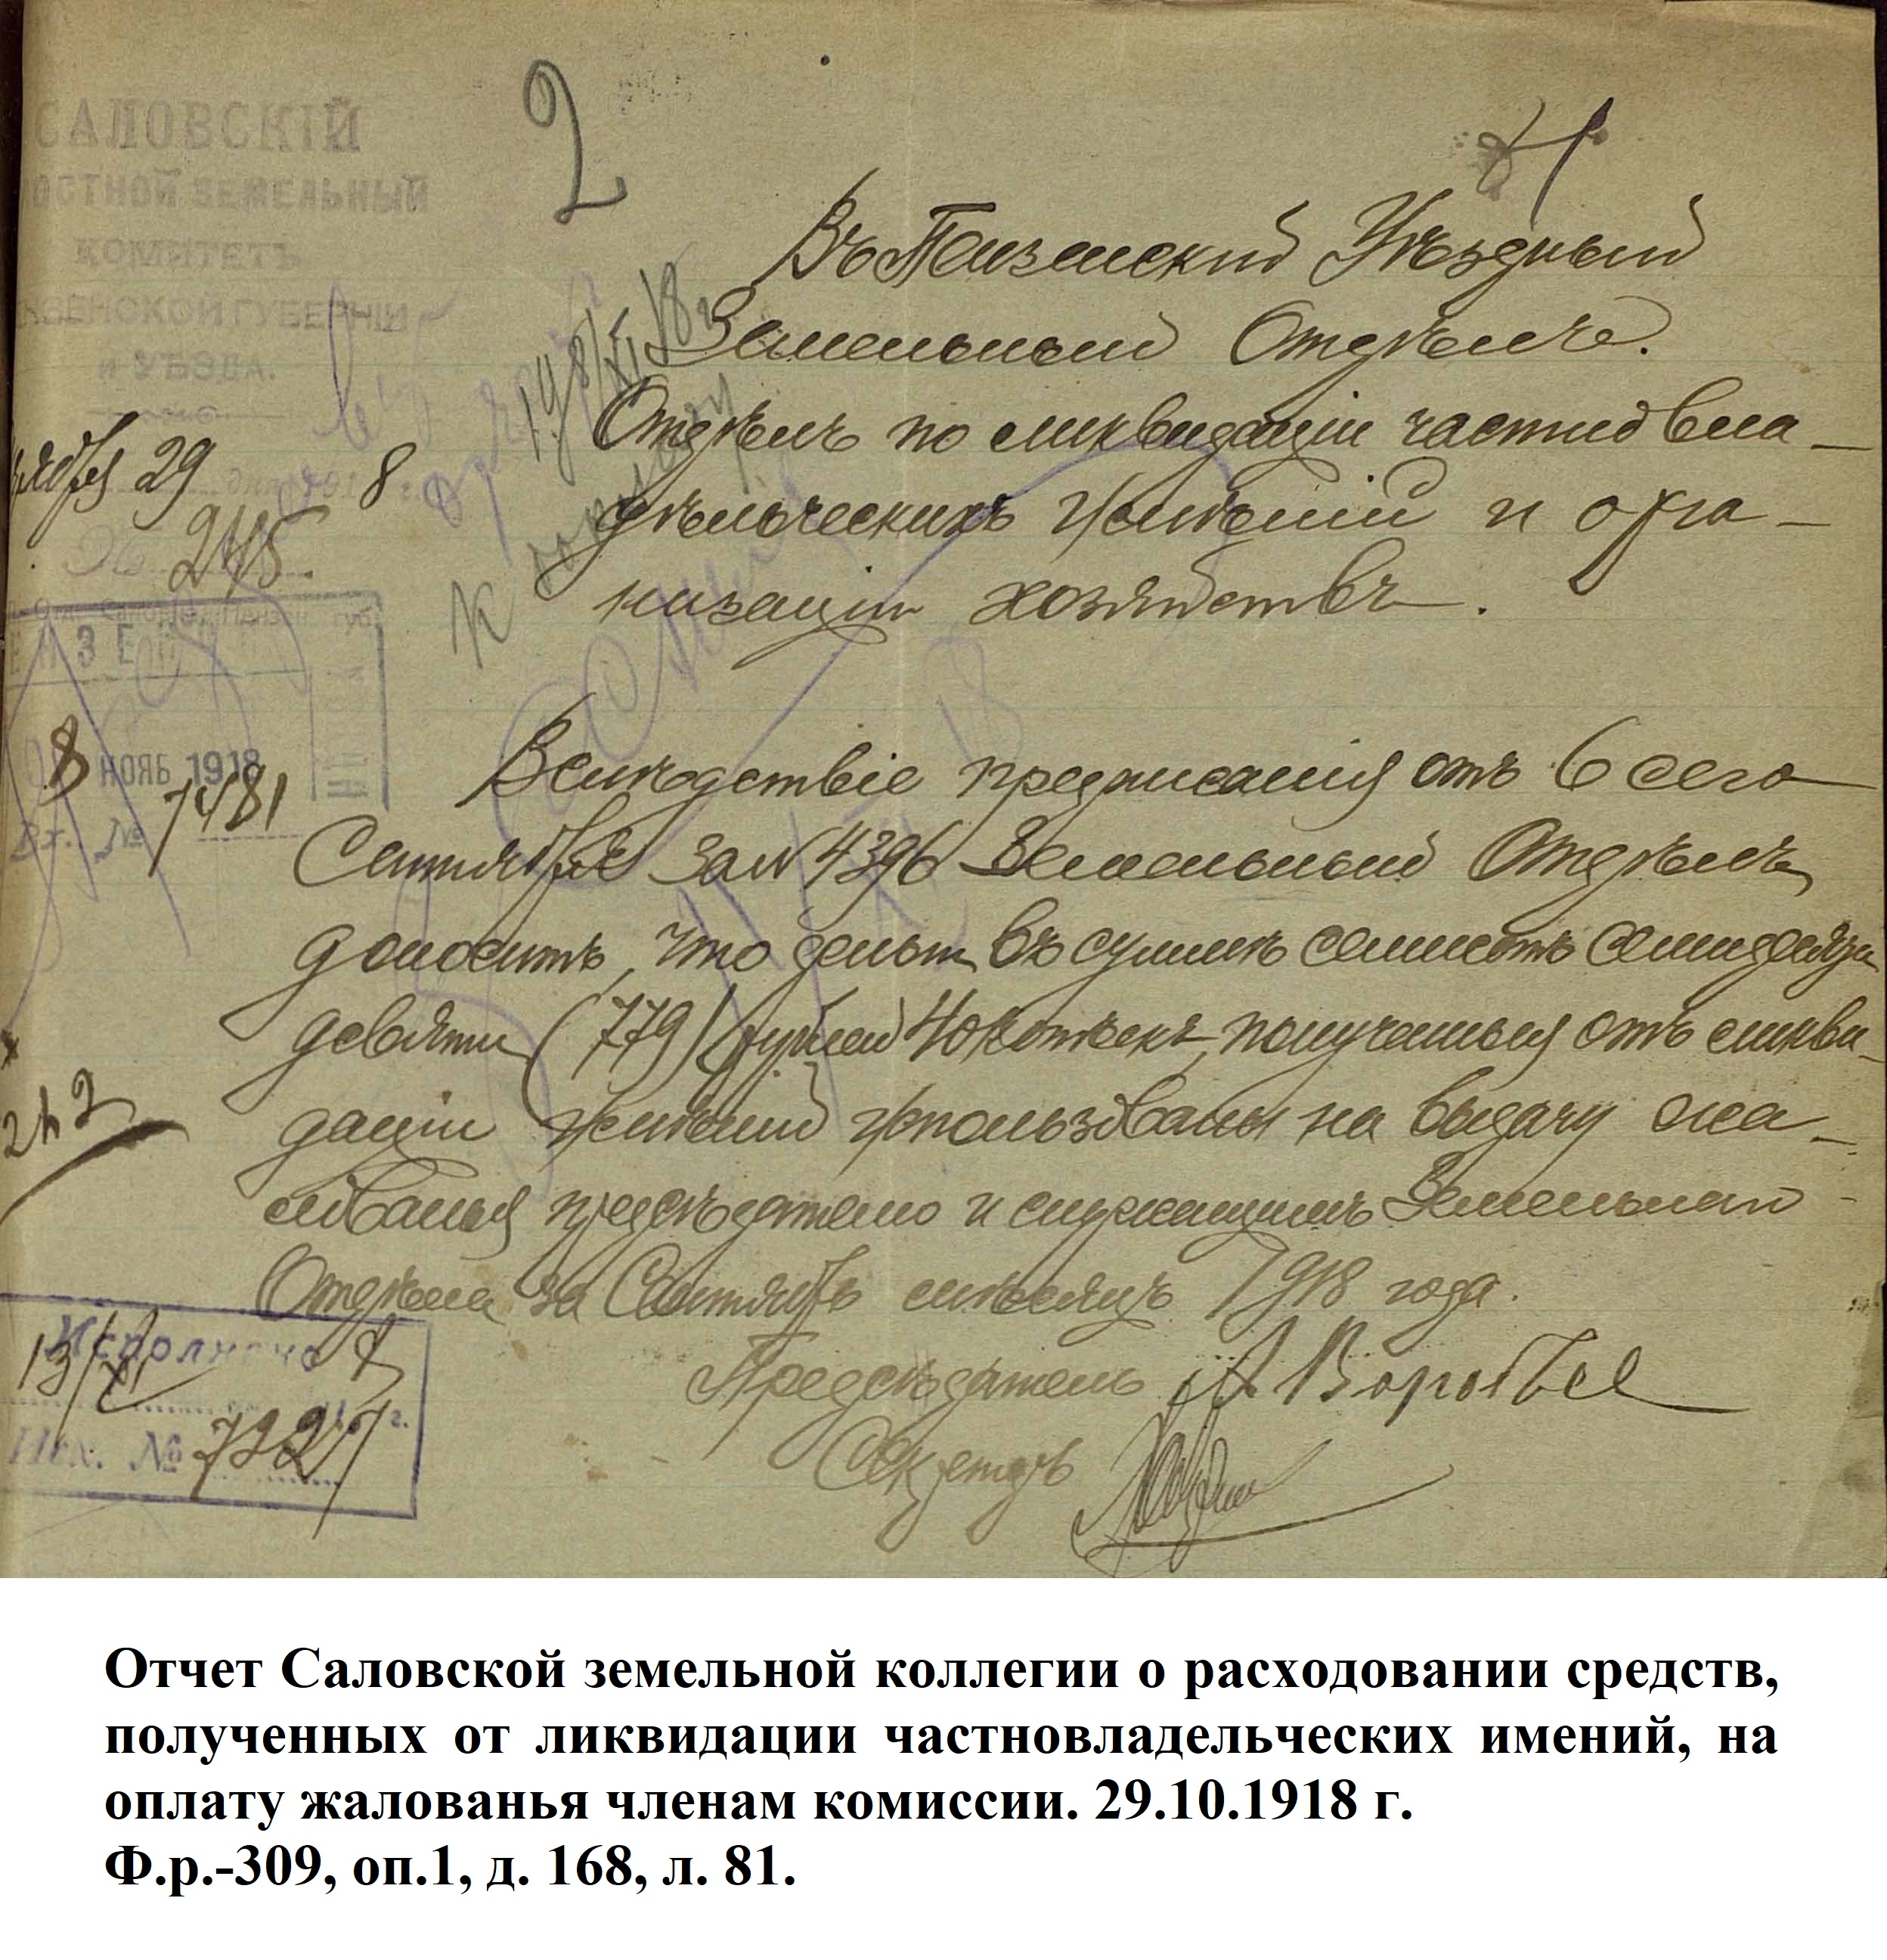 САЛОВСКІЙ
ОСТНОЙ ЗЕМЕЛЬНЫЙ
КОМИТЕТЪ
ЗЕНСКОЙ ГУБЕРНІИ
и УѢЗДА.
2
Въ Пензенскій Уѣздный
Земельный Отдѣлъ.
Отдѣлъ по ликвидаціи частно вла-
дѣльческихъ Имѣній и орга-
низаціи хозяйствъ.
29 8
№ 245
8 НОЯБ 1918
Вх. № 7481
Вслѣдствіе предписанія отъ 6 сего
Сентября за № 4396 Земельный Отдѣлъ
доноситъ, что деньги въ суммѣ семисотъ семидесяти
девяти (779) рублей 40 копѣекъ, полученныя отъ ликви-
даціи Имѣній Использованы на выдачу жа-
лованья предсѣдателю и служащимъ Земельнаго
Отдѣла за Сентябрь мѣсяцъ 1918 года.
Предсѣдатель А Воробьев
Секретарь
Исполнено
13/XI
Исх. № 7327
Отчет Саловской земельной коллегии о расходовании средств,
полученных от ликвидации частновладельческих имений, на
оплату жалованья членам комиссии. 29.10.1918 г.
Ф.р.-309, оп.1, д. 168, л. 81.